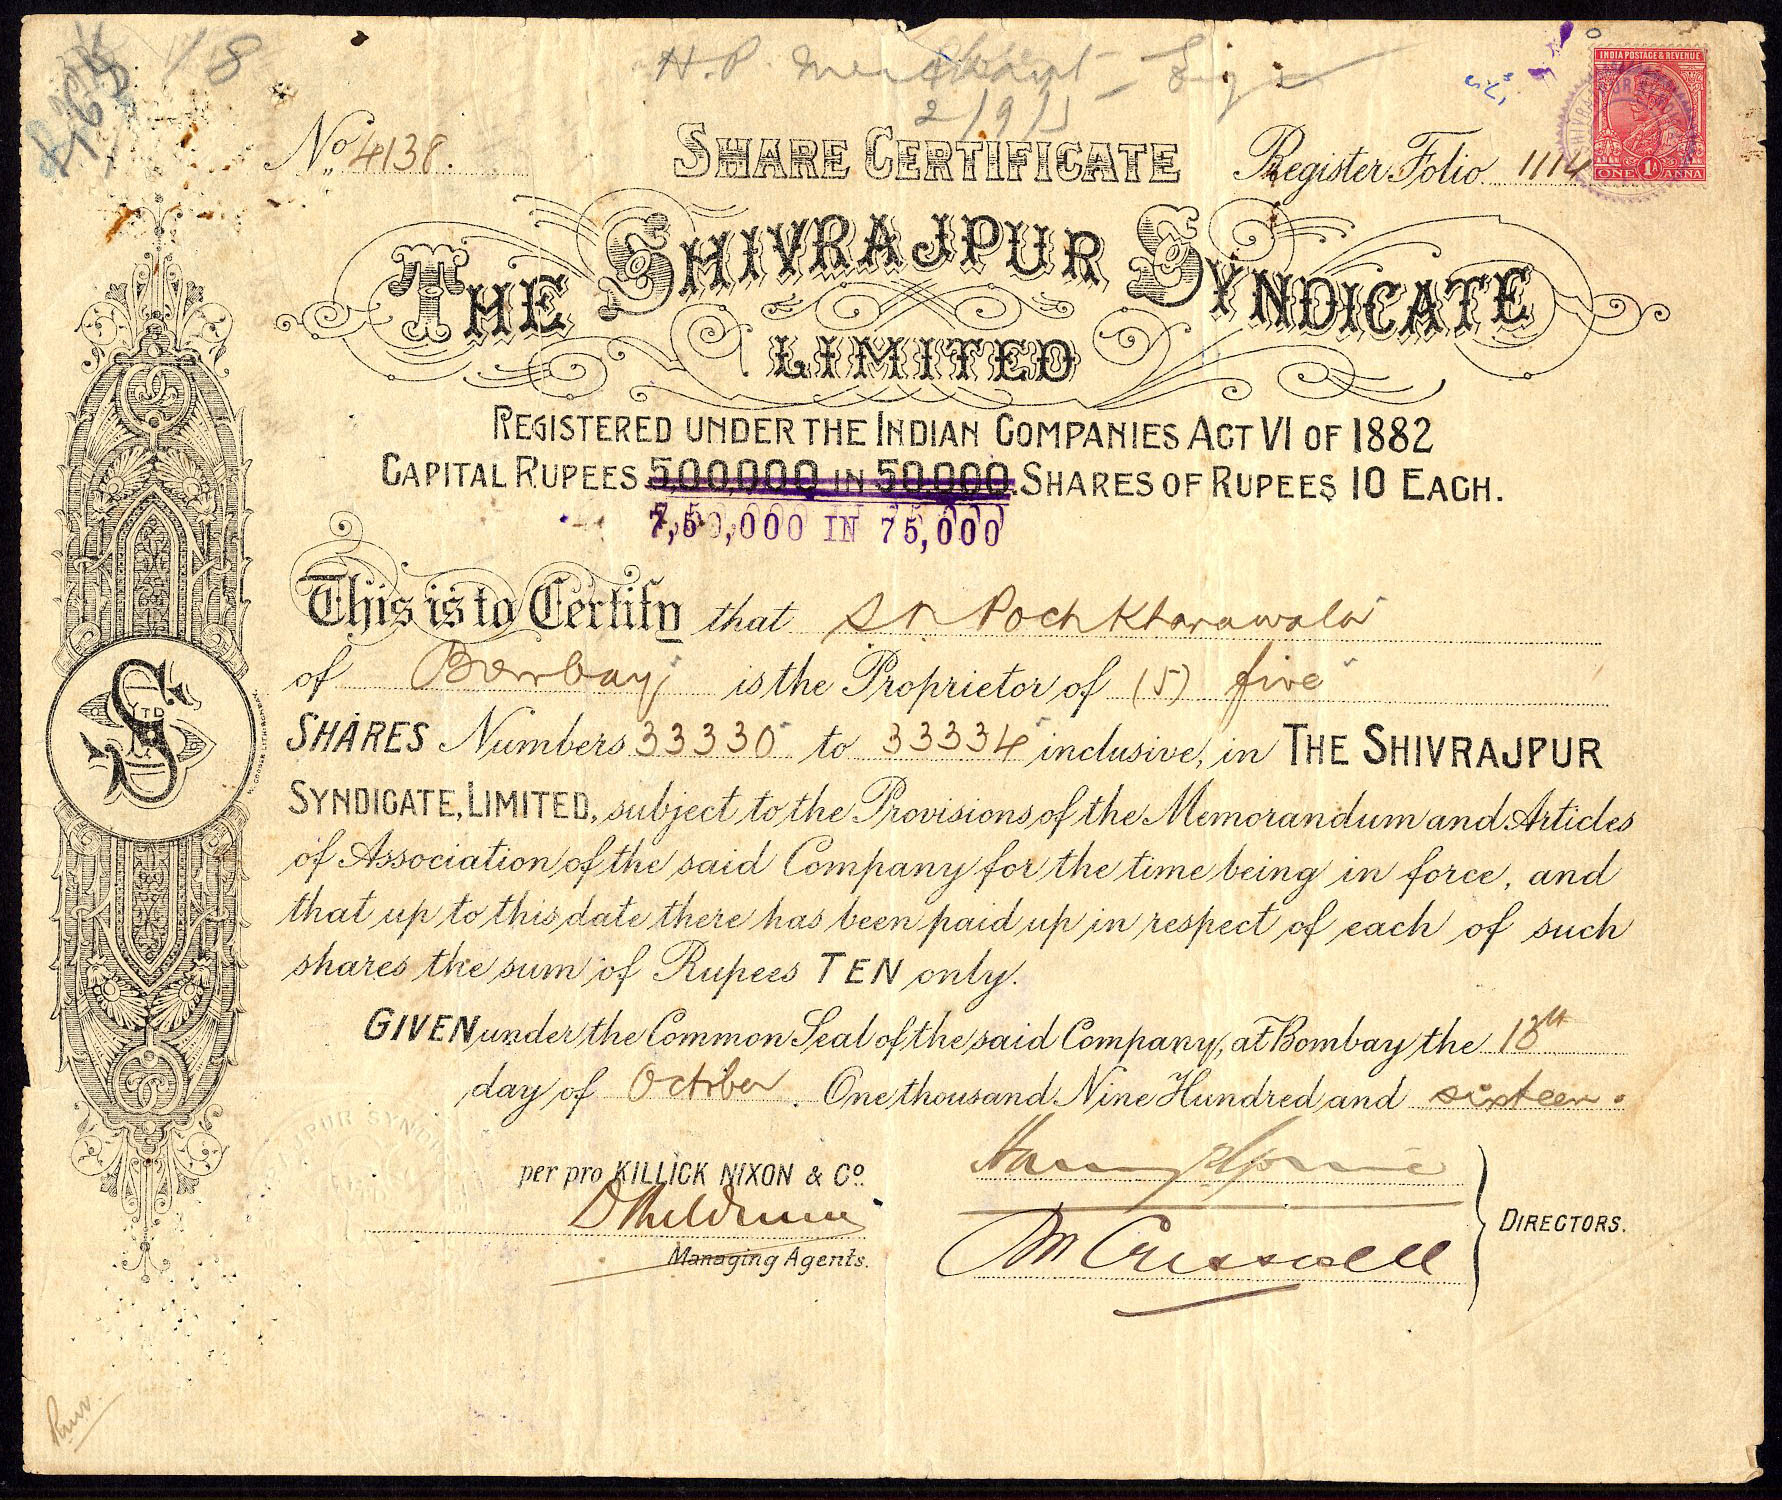 18
H. P. Merchant Esq
2/9/
INDIA POSTAGE & REVENUE
ONE 1A ANNA
No. 4138.
SHARE CERTIFICATE
Register Folio 1114
THE SHIVRAJPUR SYNDICATE
LIMITED
REGISTERED UNDER THE INDIAN COMPANIES ACT VI OF 1882
CAPITAL RUPEES 500,000 IN 50,000 SHARES OF RUPEES 10 EACH.
7,50,000 IN 75,000
This is to Certify that Pochkhanawala
of Bombay is the Proprietor of (5) five
SHARES Numbers 33330 to 33334 inclusive, in THE SHIVRAJPUR
SYNDICATE, LIMITED, subject to the Provisions of the Memorandum and Articles
of Association of the said Company for the time being in force, and
that up to this date there has been paid up in respect of each of such
shares the sum of Rupees TEN only.
GIVEN under the Common Seal of the said Company, at Bombay the 18th
day of October. One thousand Nine Hundred and sixteen.
per pro KILLICK NIXON & Co.
Managing Agents.
DIRECTORS.
LTD